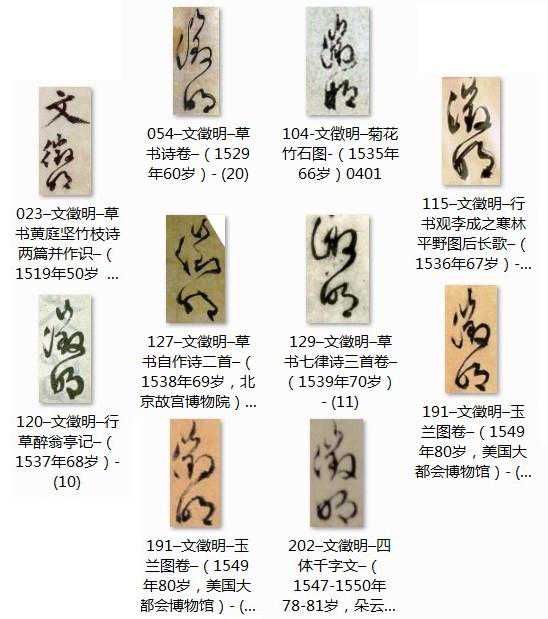 徵明
054–文徵明–草
书诗卷–（1529
年60岁）- (20)
徵明
104-文徵明–菊花
竹石图-（1535年
66岁）0401
文徵明
023–文徵明–草
书黄庭坚竹枝诗
两篇并作识–（
1519年50岁 ...
徵明
115–文徵明–行
书观李成之寒林
平野图后长歌–（
1536年67岁）-...
徵明
127–文徵明–草
书自作诗二首–（
1538年69岁，北
京故宫博物院）...
徵明
129–文徵明–草
书七律诗三首卷–
（1539年70岁）
- (11)
徵明
120–文徵明–行
草醉翁亭记–（
1537年68岁）-
(10)
徵明
191–文徵明–玉
兰图卷–（1549
年80岁，美国大
都会博物馆）- (...
徵明
191–文徵明–玉
兰图卷–（1549
年80岁，美国大
都会博物馆）- (...
徵明
202–文徵明–四
体千字文–（
1547-1550年
78-81岁，朵云...